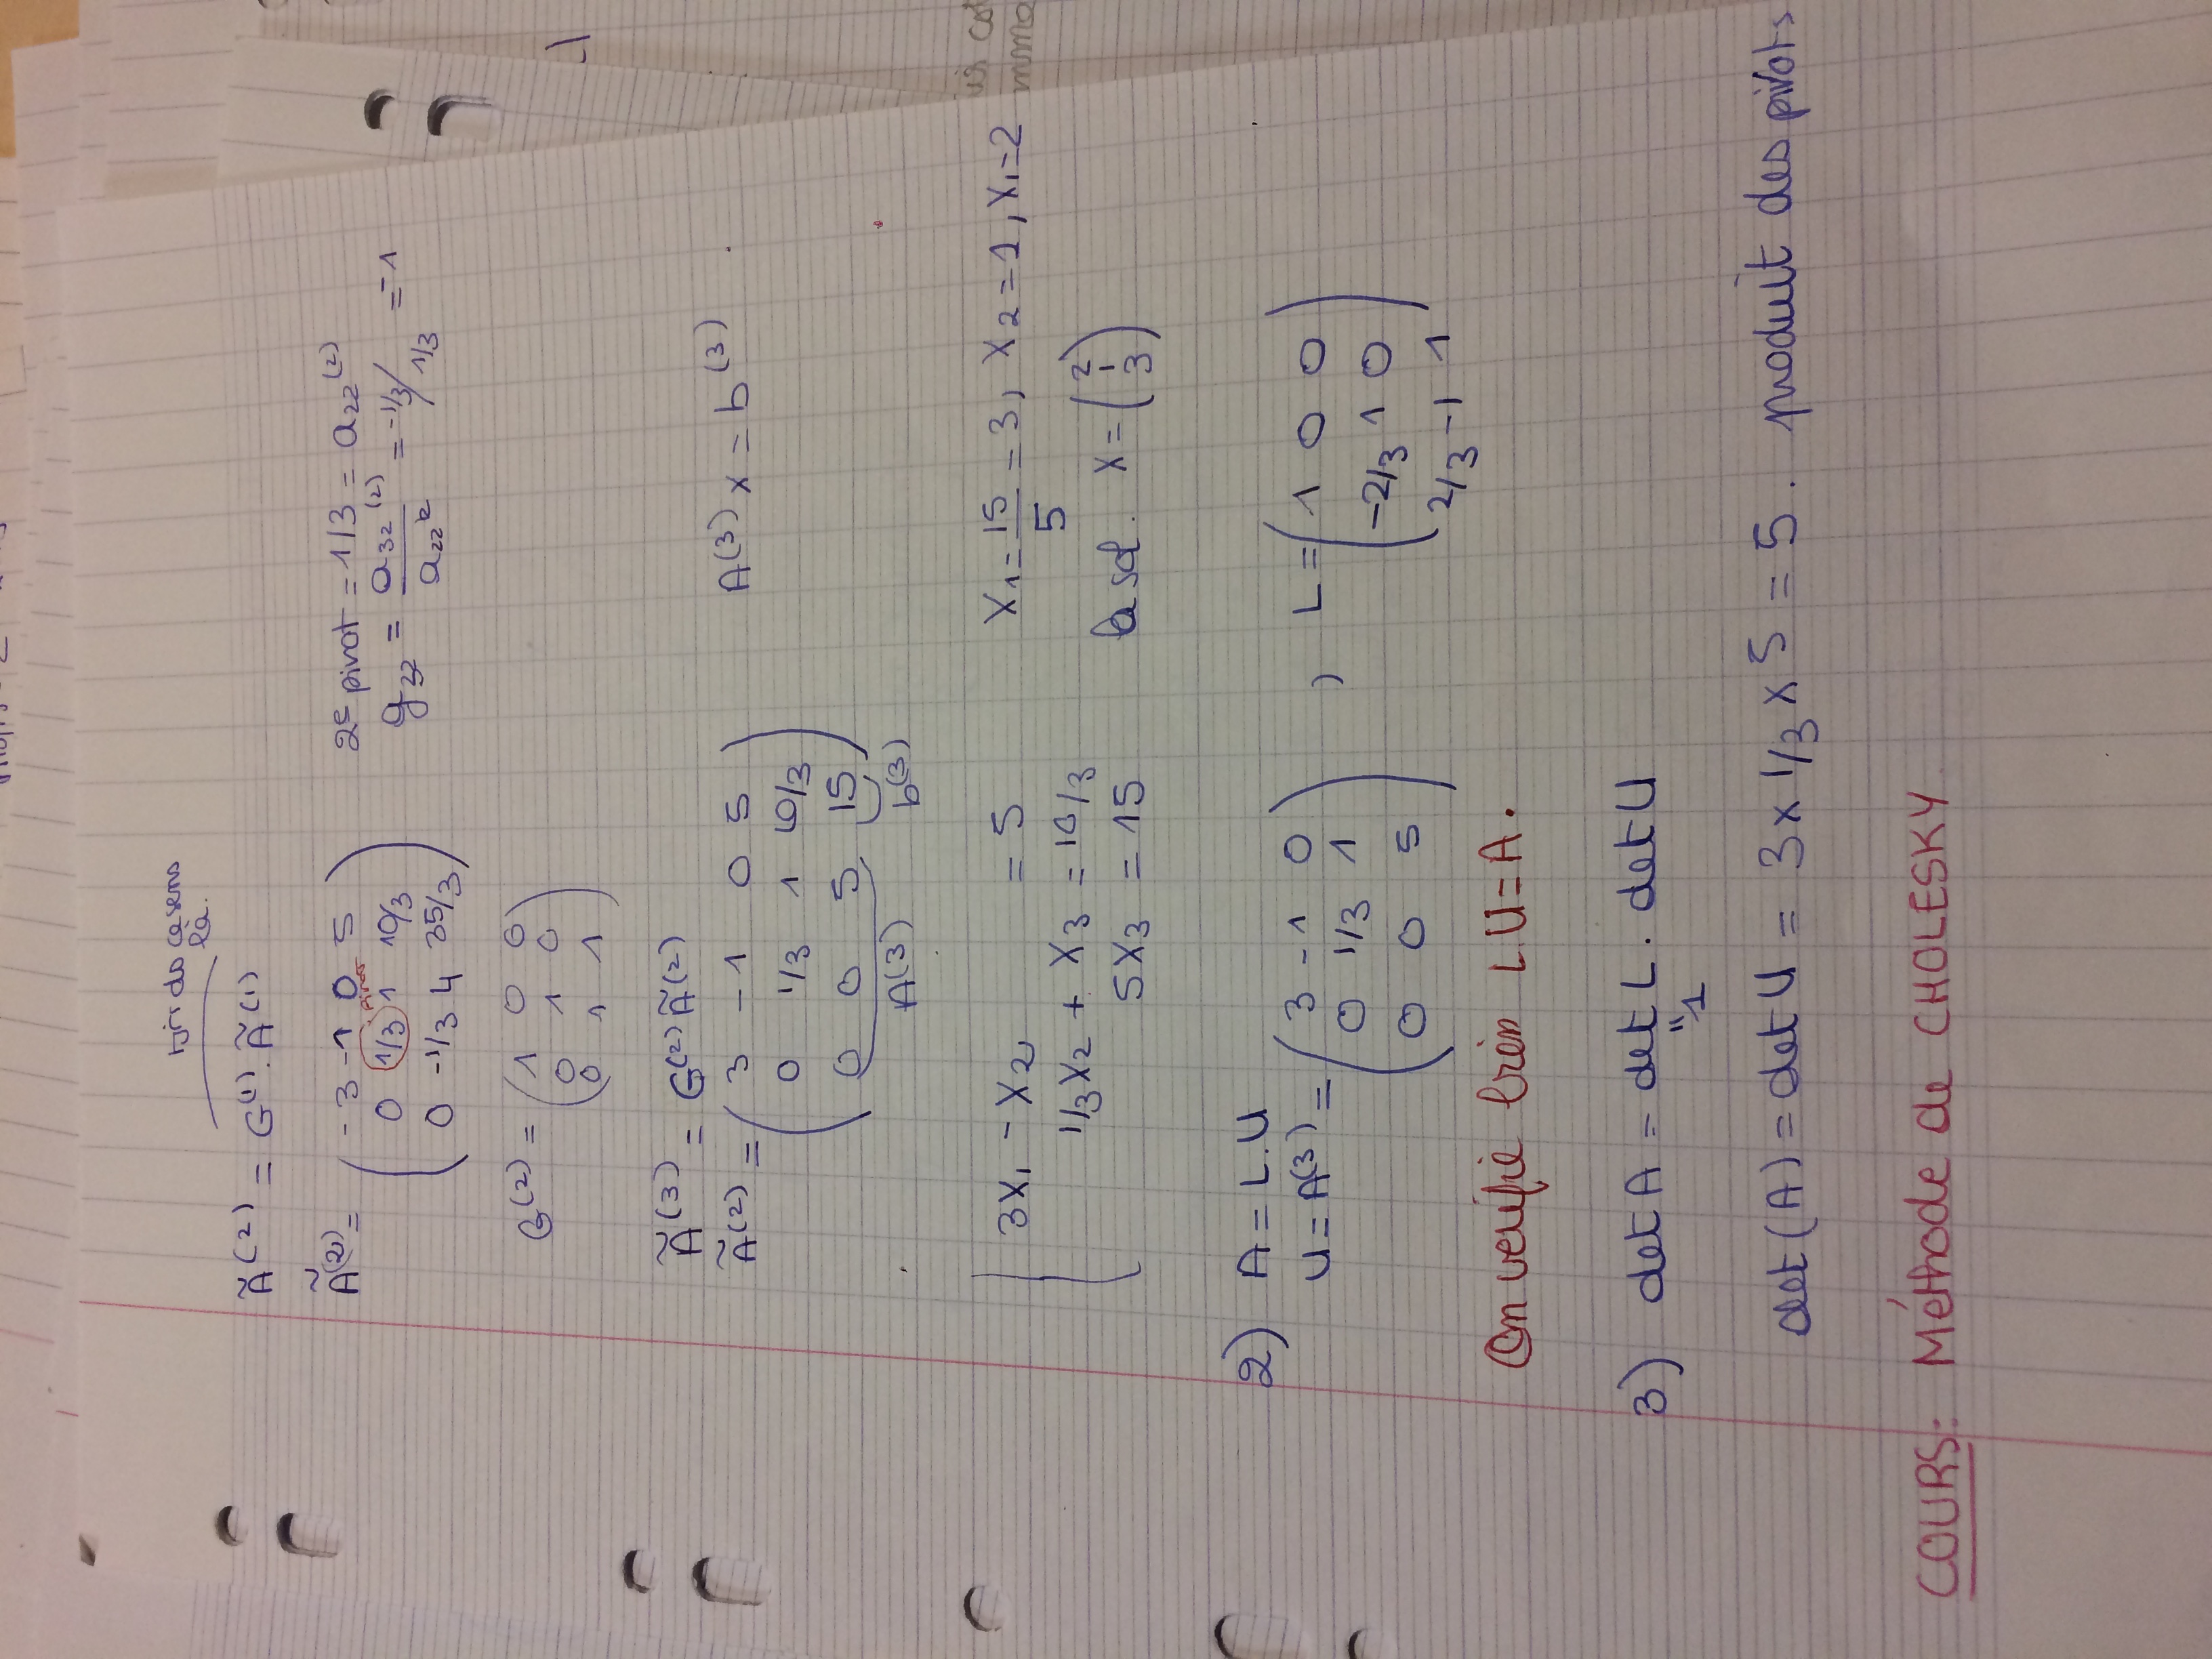 tjrs ds ce sens
là.
Ã(2) = G(1). Ã(1)
Ã(2) = ( -3 -1 0 5 )
0 1/3 1 10/3
0 -1/3 4 35/3
pivot
2e pivot = 1/3 = a22(2)
g32 = a32(2) / a22² = -1/3 / 1/3 = -1
G(2) = ( 1 0 0 )
0 1 0
0 1 1
Ã(3) = G(2) Ã(2)
Ã(2) = ( 3 -1 0 5 )
0 1/3 1 10/3
0 0 5 15
A(3) b(3)
A(3) x = b(3)
3x1 - x2 = 5
1/3x2 + x3 = 10/3
5x3 = 15
x1 = 15/5 = 3, x2 = 1, x1 = 2
la sol. x = ( 2 1 3 )
2) A = L.U
U = A(3) = ( 3 -1 0 )
0 1/3 1
0 0 5
, L = ( 1 0 0 )
-2/3 1 0
2/3 -1 1
On verifie bien L.U = A.
3) det A = det L . det U
"1
det (A) = det U = 3 x 1/3 x 5 = 5. produit des pivots
COURS : Méthode de CHOLESKY